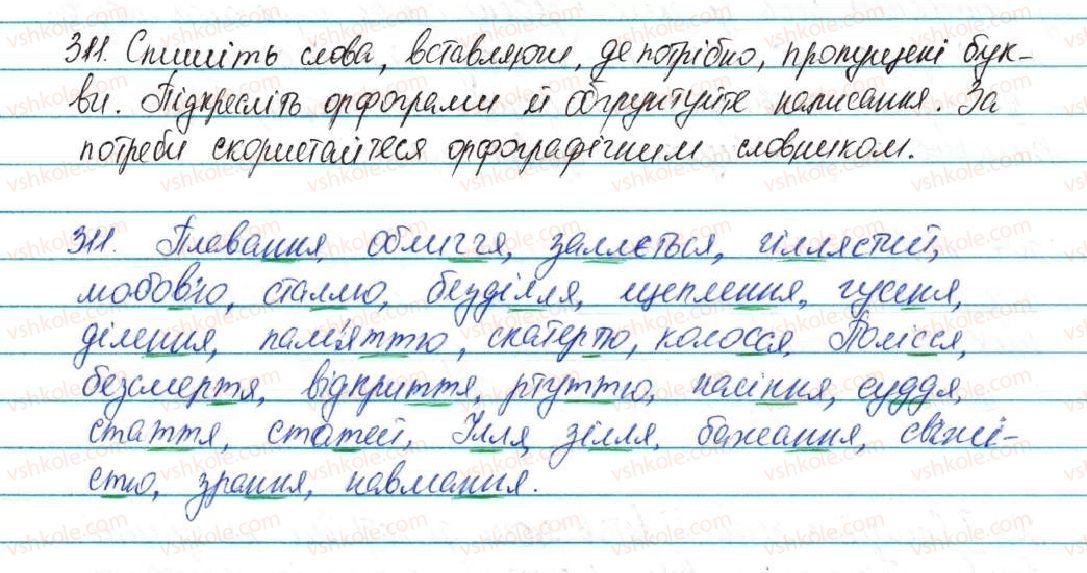 311. Спишіть слова, вставляючи, де потрібно, пропущені бук-
ви. Підкресліть орфограми й обґрунтуйте написання. За
потреби скористайтеся орфографічним словником.
311. Плавання, обличчя, заллється, гіллястий,
мобов'ю, сталлю, безділля, щеплення, гусеня,
ділення, пам'яттю, скатертю, колосся, Полісся,
безсмертя, відкриття, ртуттю, насіння, суддя,
стаття, статей, Ілля, зілля, бажання, свіжі-
стю, зрання, навмання.